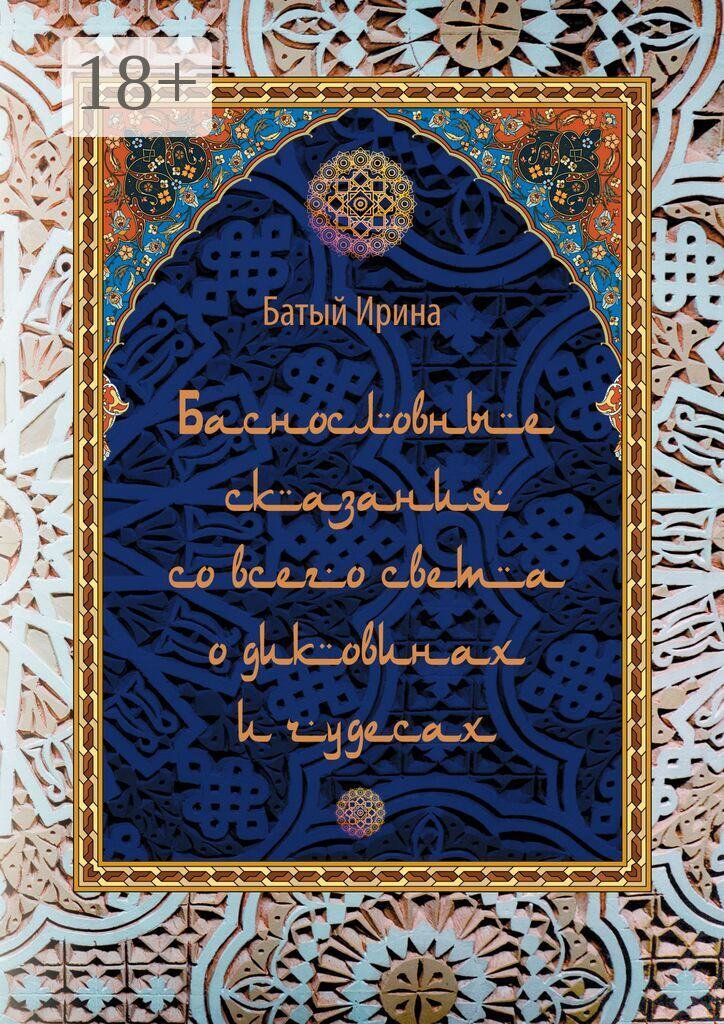 18+
Батый Ирина
Баснословные
сказания
со всего света
о диковинах
и чудесах